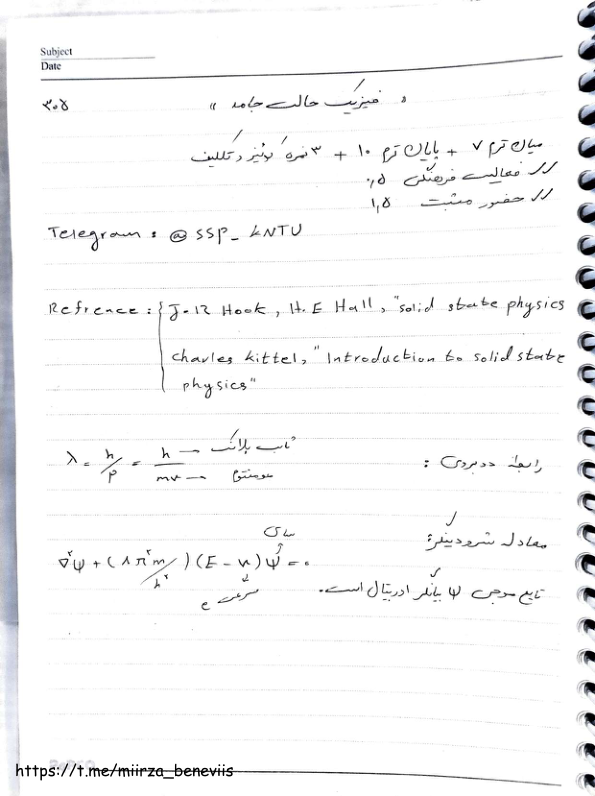 Subject
Date
« فیزیک حالت جامد » ۳۰۵
میان ترم ۷ + پایان ترم ۱۰ + ۳ نمره کوئیز و تکلیف
// فعالیت فرهنگی ۰٫۵
// حضور مثبت ۱٫۵
Telegram : @ SSP_ KNTU
Refrence : { J-R Hook , H.E Hall , "solid state physics
charles kittel, "Introduction to solid state
physics"
رابطه دوبروی :
λ = h/p = h/mv
ثابت پلانک
مومنتوم
معادله شرودینگر
∇²Ψ + (۸π²m/h²)(E - v)Ψ = ۰
تابع موجی Ψ بیانگر اوربیتال است.
https://t.me/miirza_beneviis